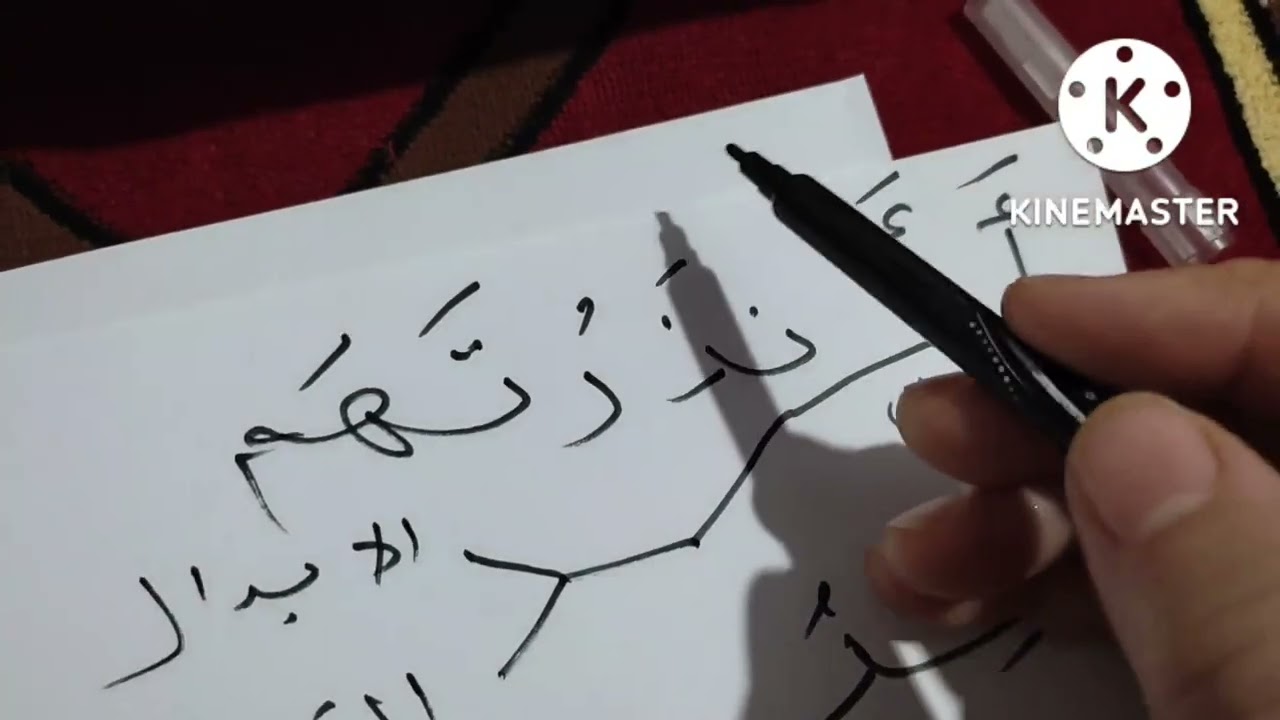 K
KINEMASTER
أَ ءَ نذَرْتَهَم
الابدال